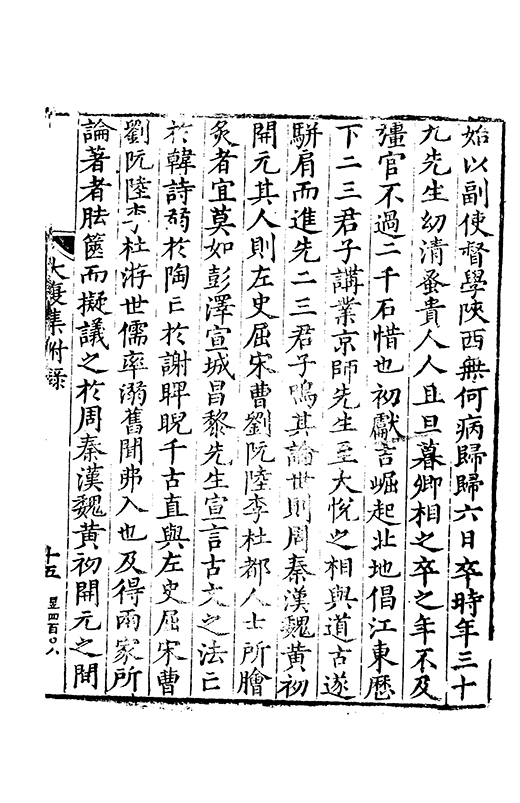 始以副使督學陝西無何病歸歸六日卒時年三十
九先生幼清蚤貴人人且旦暮卿相之卒之年不及
彊官不過二千石惜也初獻吉崛起北地倡江東歷
下二三君子講業京師先生至大悅之相與道古遂
駢肩而進先二三君子鳴其論世則周秦漢魏黃初
開元其人則左史屈宋曹劉阮陸李杜都人士所膾
炙者宜莫如彭澤宣城昌黎先生宣言古文之法亡
於韓詩弱於陶亡於謝睥睨千古直與左史屈宋曹
劉阮陸李杜游世儒率溺舊聞弗入也及得兩家所
論著者胠篋而擬議之於周秦漢魏黃初開元之間
大復集附錄
十五
昱四百〇八